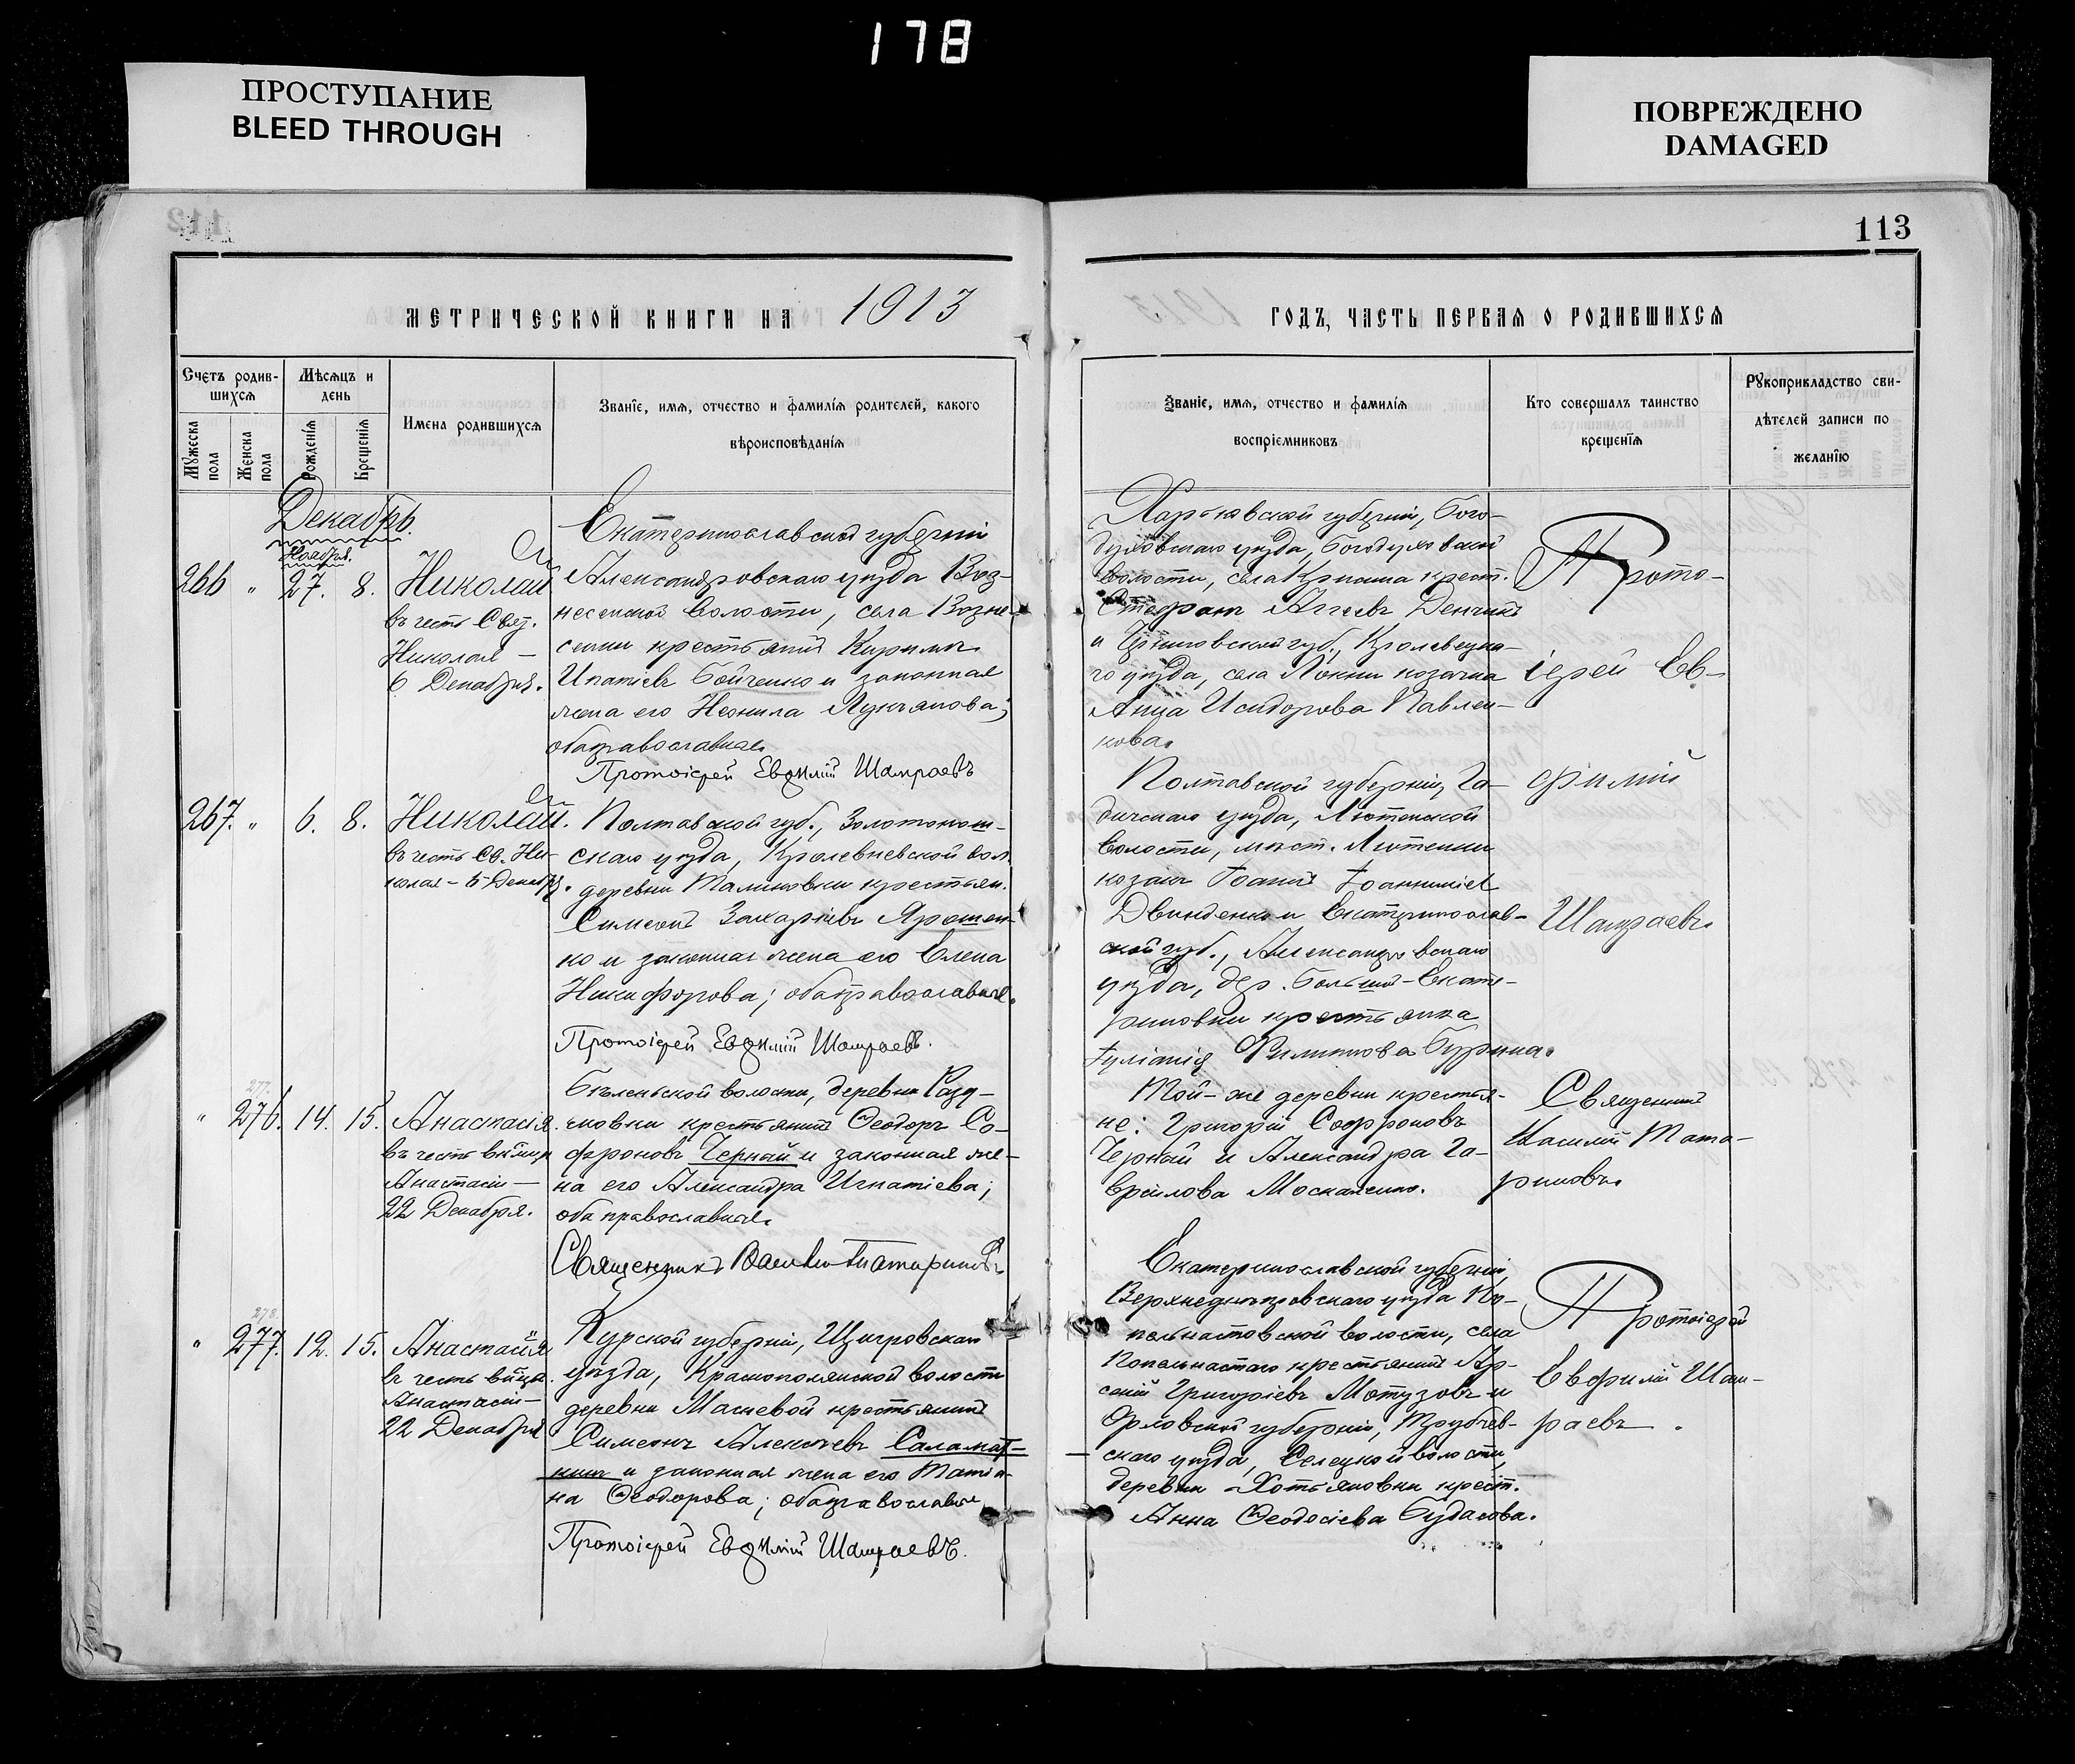 178
ПРОСТУПАНИЕ
BLEED THROUGH
ПОВРЕЖДЕНО
DAMAGED
113
МЕТРИЧЕСКОЙ КНИГИ НА 1913
ГОДЪ, ЧАСТЬ ПЕРВАЯ О РОДИВШИХСЯ
Счетъ родив-
шихся
Мужеска пола
Женска пола
Мѣсяцъ и
день
Рожденія
Крещенія
Имена родившихся
Званіе, имя, отчество и фамилія родителей, какого
вѣроисповѣданія
Званіе, имя, отчество и фамилія
воспріемниковъ
Кто совершалъ таинство
крещенія
Рукоприкладство сви-
дѣтелей записи по
желанію
Декабрь.
Ноября.
266 " 27. 8. Николай
въ честь Свят.
Николая —
6 Декабря.
Екатеринославской губерніи
Александровскаго уѣзда Воз-
несенской волости, села Возне-
сенки крестьянинъ Кириллъ
Ипатіевъ Бойченко и законная
жена его Неонила Лукьянова;
оба православные.
Протоіерей Евѳимій Шамраевъ
Харьковской губерніи, Бого-
духовскаго уѣзда, Богодуховской
волости, села крест.
Стефанъ Аггеевъ Денчикъ
и Черниговской губ., Кролевецка-
го уѣзда, села Локни козачка
Анна Исидорова Павлен-
кова.
Прото-
іерей Ев-
фимій
Шамраевъ.
267. " 6. 8. Николай.
въ честь Св. Ни-
колая — 6 Декабр.
Полтавской губ., Золотонош-
скаго уѣзда, Кролевецкой вол.
деревни крестьян.
Симеонъ Захаріевъ Ярошен-
ко и законная жена его Елена
Никифорова; оба православные.
Протоіерей Евѳимій Шамраевъ.
Полтавской губерніи, Га-
дячскаго уѣзда, Лютенской
волости, мѣст. Лютеньки
козакъ Іоаннъ Іоанникіев
Двинденко и Екатеринослав-
ской губ., Александровскаго
уѣзда, дер. Больш.-Екате-
риновки крестьянка
Іуліанія Филиппова Бурына.
277.
" 276. 14. 15. Анастасія.
въ честь вмцы
Анастасіи —
22 Декабря.
Бѣленьской волости, деревни Разу-
мовки крестьянинъ Ѳеодоръ Со-
фроновъ Черный и законная же-
на его Александра Игнатіева;
оба православные.
Священникъ Василій Татариновъ
Той-же деревни крестья-
не: Григорій Софроновъ
Черный и Александра Га-
врилова Москаленко.
Священникъ
Василій Тата-
риновъ.
278.
" 277. 12. 15. Анастасія
въ честь вмцы.
Анастасіи —
22 Декабря
Курской губерніи, Щигровскаго
уѣзда, Краснополянской волости
деревни крестьянинъ
Симеонъ Алексѣевъ Саламат-
кинъ и законная жена его Татіа-
на Ѳеодорова; оба православные
Протоіерей Евѳимій Шамраевъ.
Екатеринославской губерніи,
Верхнеднѣпровскаго уѣзда По-
пельнастовской волости, села
Попельнастаго крестьянинъ Ар-
сеній Григоріевъ Мотузовъ и
Орловской губерніи, Трубчев-
скаго уѣзда, Селецкой волости,
деревни Хотьяновки крест.
Анна Ѳеодосіева Будакова.
Протоіерей
Евфимій Шам-
раевъ.